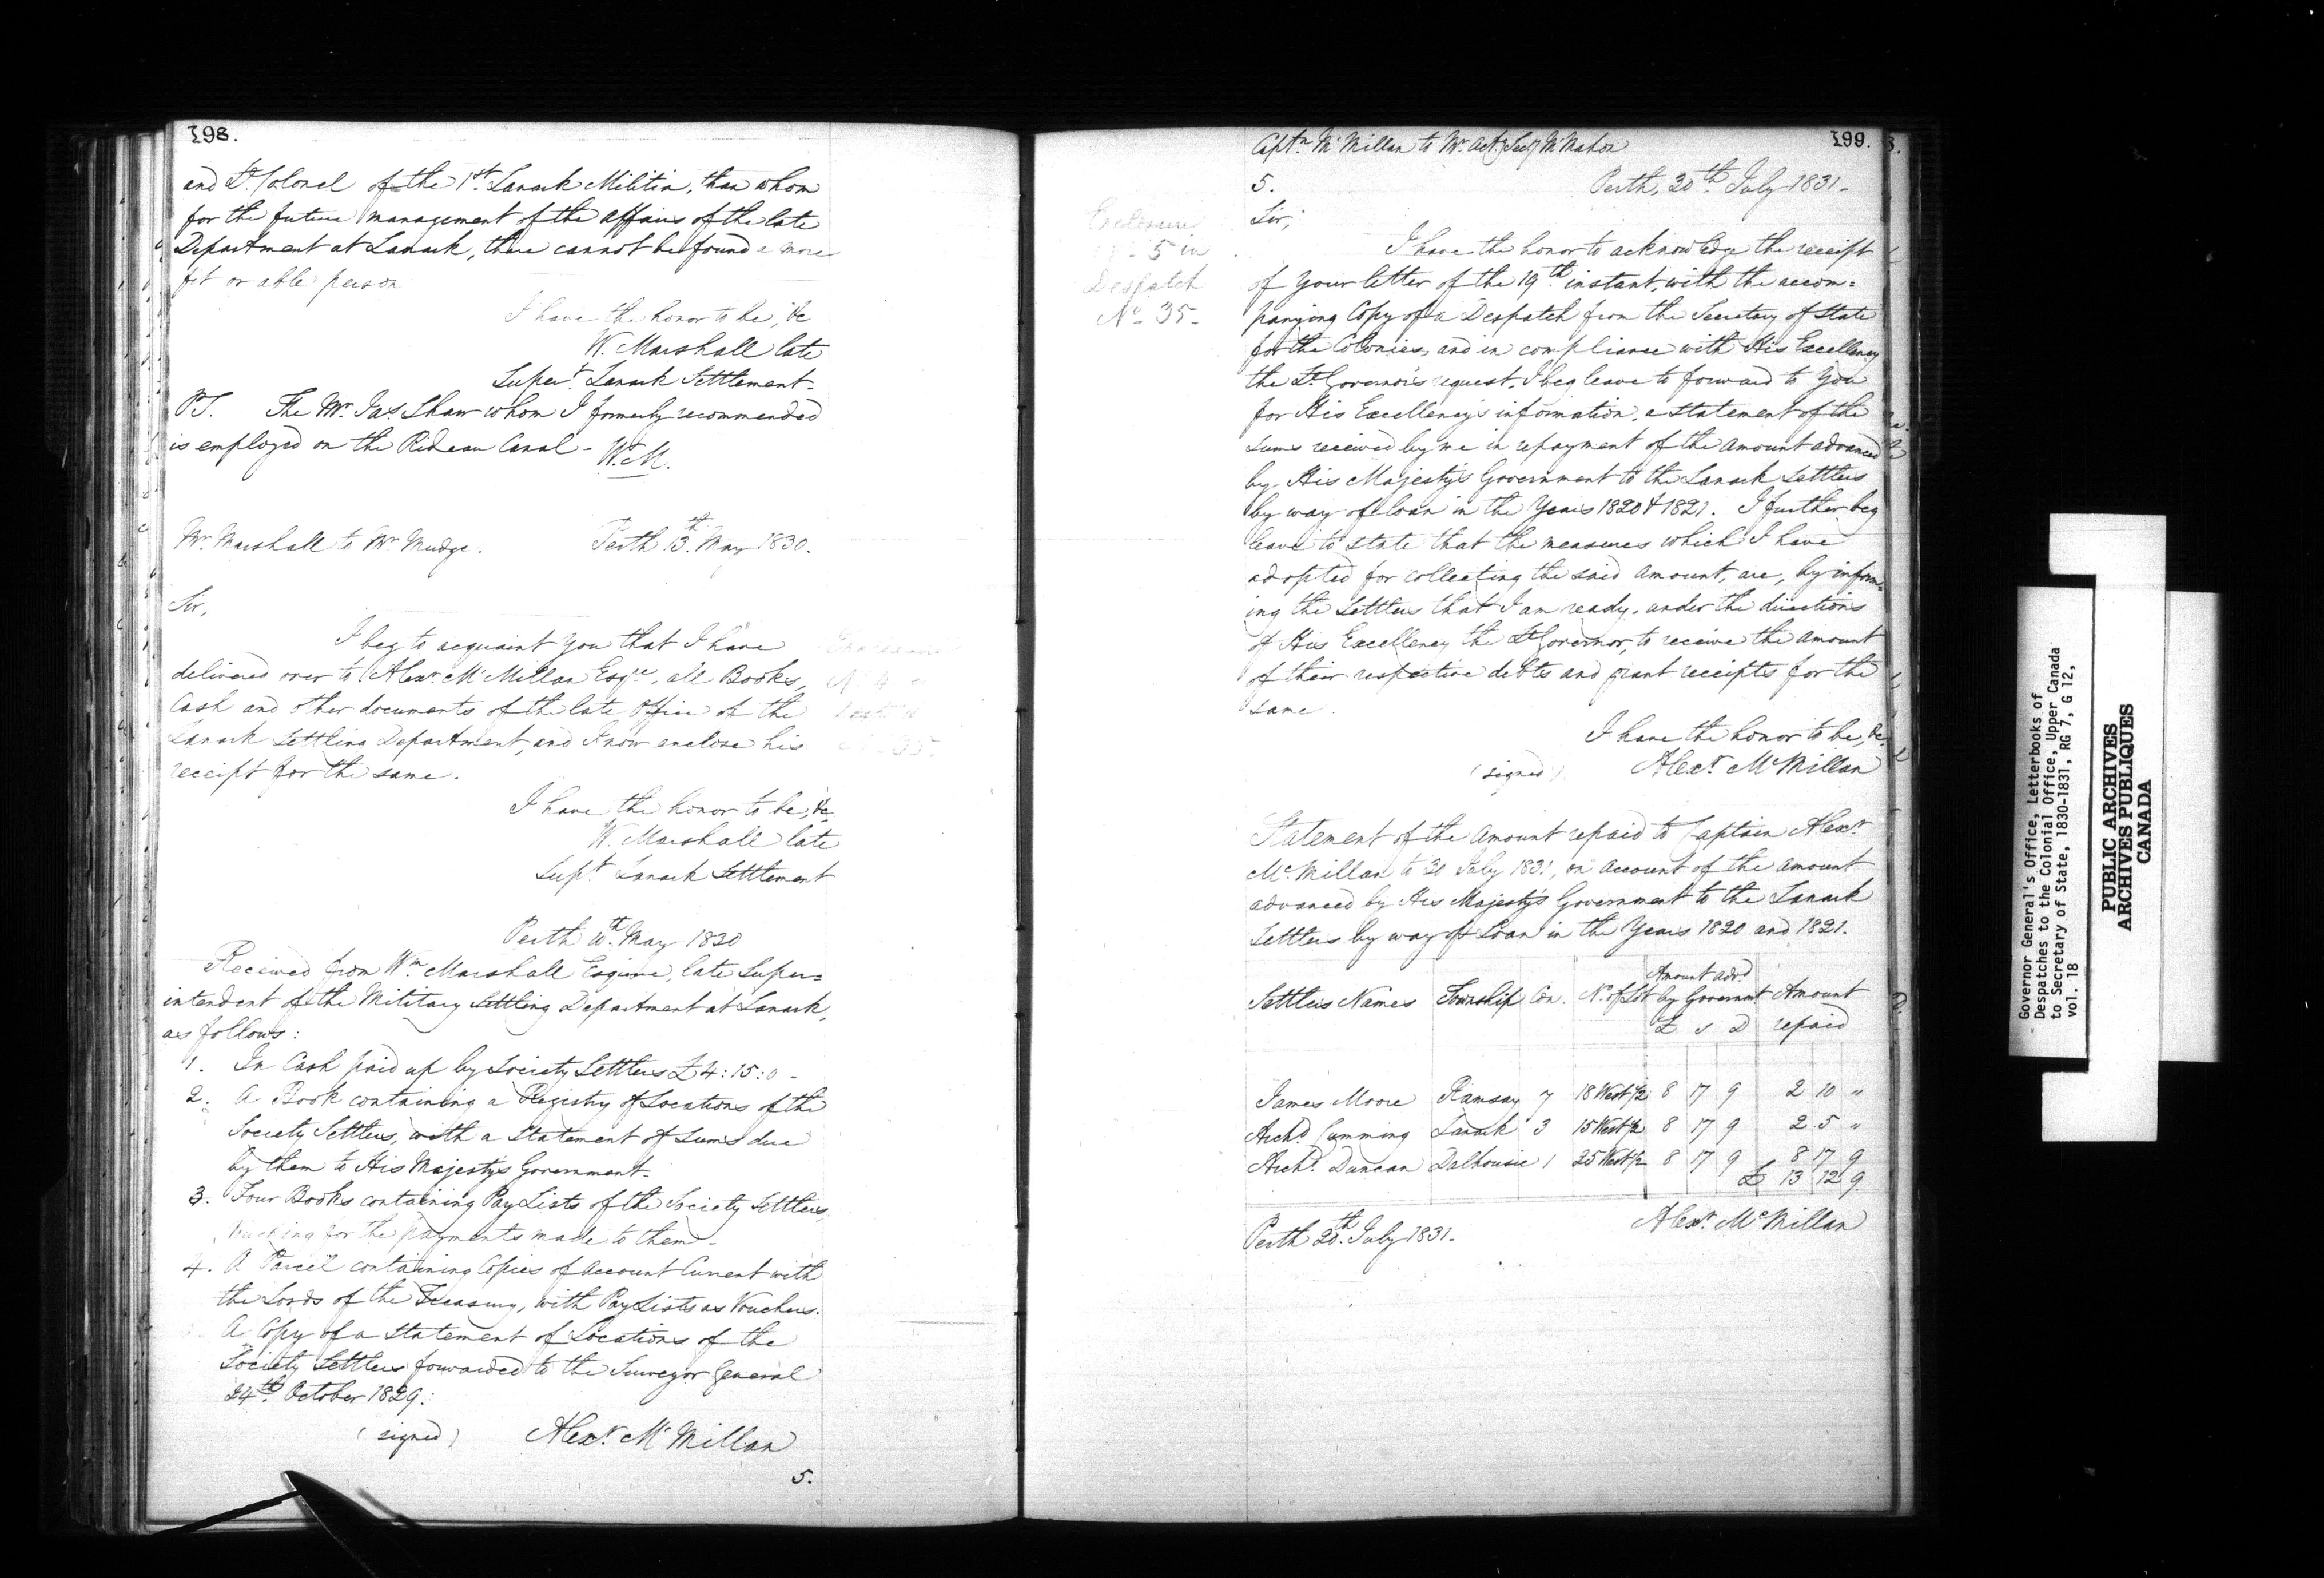 198.
and Lt. Colonel of the 1st. Lanark Militia, than whom
for the future management of the affairs of the late
Department at Lanark, there cannot be found a more
fit or able person
I have the honor to be, &c
W. Marshall late
Supert. Lanark Settlement-
P.S. The Mr. Jas. Shaw whom I formerly recommended
is employed on the Rideau Canal -
W.M.
Mr. Marshall to Mr Mudge. Perth 13th. May 1830.
Sir,
I beg to acquaint you that I have
delivered over to Alexr. McMillan Esqre, all Books,
Cash and other documents of the late Office of the
Lanark Settling Department, and I now enclose his
receipt for the same.
I have the honor to be, &c
W. Marshall late
Supt. Lanark Settlement
Perth th. May 1830
Received from Wm. Marshall Esquire, late Super=
intendent of the Military Settling Department at Lanark,
as follows:
1. In Cash paid up by Society Settlers £4:15:0-
2. A Book containing a Registry of Locations of the
Society Settlers, with a Statement of Sums due
by them to His Majesty's Government-
3. Four Books containing Pay Lists of the Society Settlers,
Vouching for the payments made to them-
4. A Parcel containing Copies of Account Current with
the Lords of the Treasury, with Pay Lists as Vouchers.
A Copy of a Statement of Locations of the
Society Settlers forwarded to the Surveyor General
24th. October 1829:
(signed) Alexr. McMillan
5.
Captn. McMillan to Mr. Actg. Secy McMahon
199.
5. Perth, 30th July 1831-
Enclosure
5 in
Despatch
No- 35-
Sir;
I have the honor to acknowledge the receipt
of your letter of the 19th instant, with the accom=
panying Copy of a Despatch from the Secretary of State
for the Colonies, and in compliance with His Excellency
the Lt. Governor's request, I beg leave to forward to you
for His Excellency's information, a statement of the
sums received by me in repayment of the amount advanced
by His Majesty's Government to the Lanark Settlers
by way of loan in the Years 1820 & 1821. I further beg
leave to state that the measures which I have
adopted for collecting the said amount, are, by inform=
ing the Settlers that I am ready, under the directions
of His Excellency the Lt Governor, to receive the amount
of their respective debts and grant receipts for the
same.
I have the honor to be, &c.
(signed) Alexr. McMillan
Statement of the Amount repaid to Captain Alexr.
McMillan to 30 July 1831, on account of the amount
advanced by His Majesty's Government to the Lanark
Settlers by way of Loan in the Years 1820 and 1821.
Settlers Names Township Con. No. of Lot Amount advd by Governmt Amount
£ s D repaid
James Moore Ramsay 7 18 West 1/2 8 17 9 2 10 "
Archd. Cumming Lanark 3 15 West 1/2 8 17 9 2 5 "
Archd. Duncan Dalhousie 1 25 West 1/2 8 17 9 8 17 9
£ 13 12 9
Alexr. McMillan
Perth th. July 1831-
Governor General's Office, Letterbooks of
Despatches to the Colonial Office, Upper Canada
to Secretary of State, 1830-1831, RG 7, G 12,
vol. 18
PUBLIC ARCHIVES
ARCHIVES PUBLIQUES
CANADA